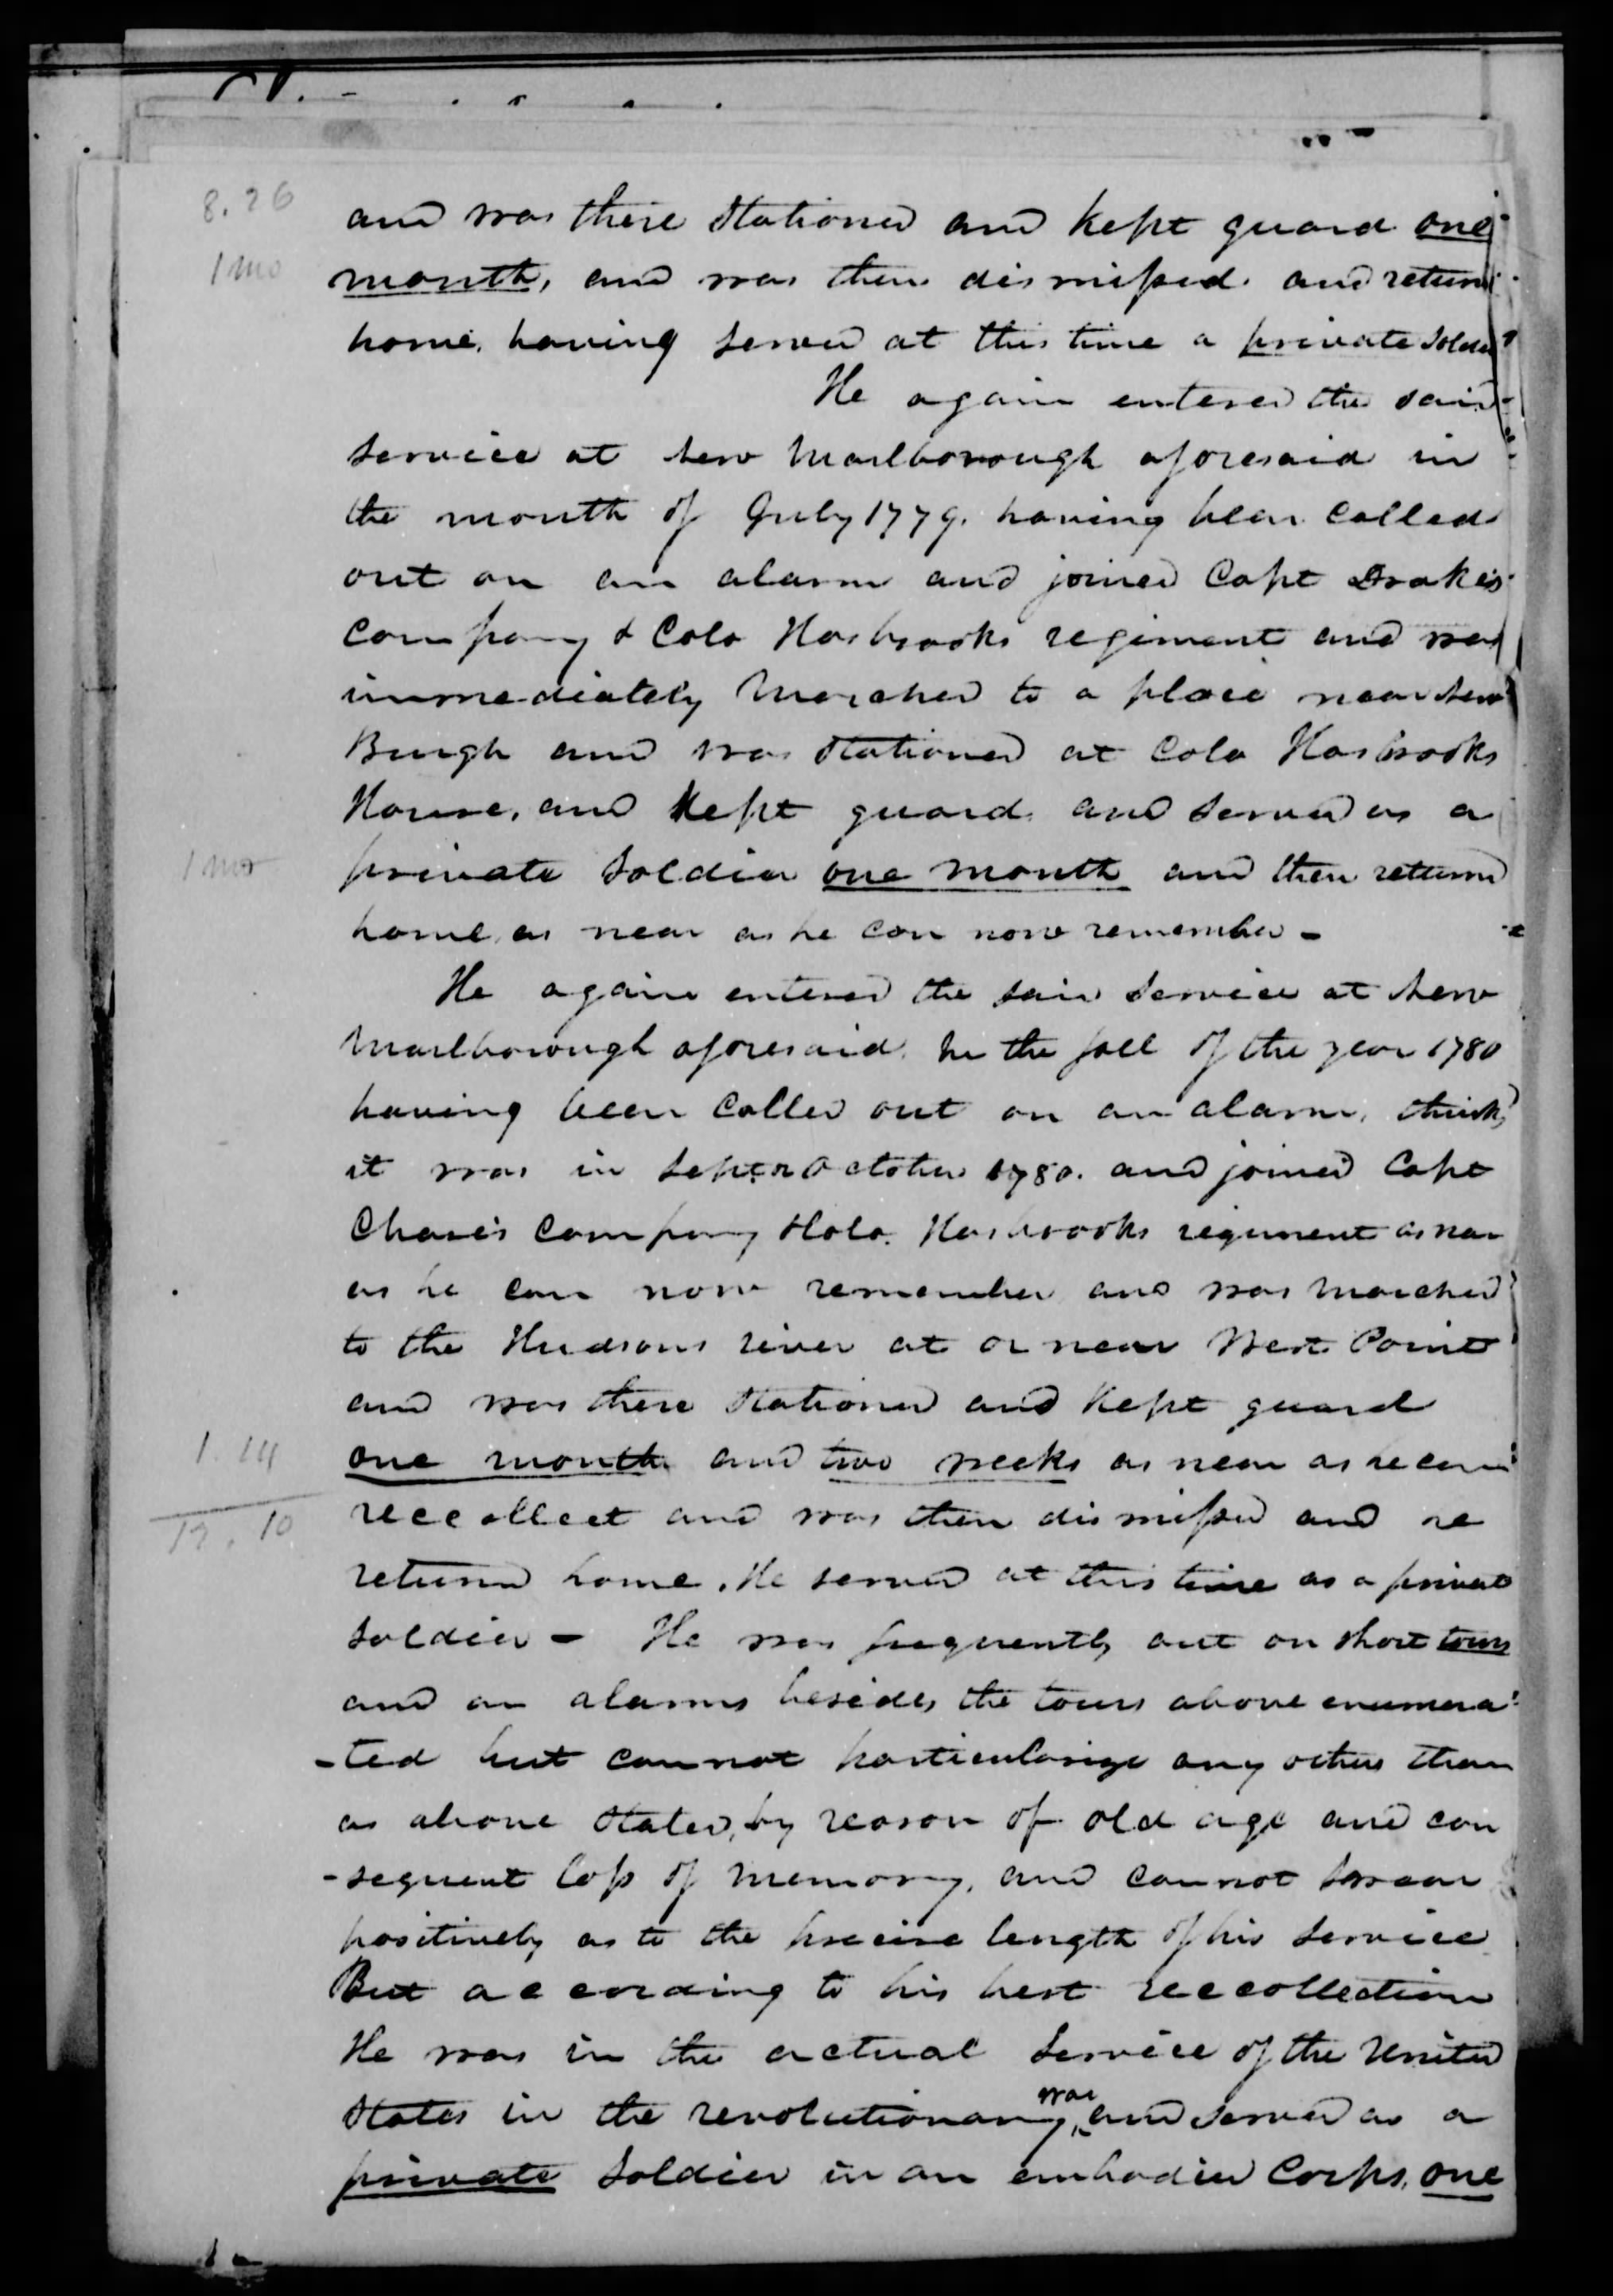 8.26
and was there stationed and kept guard one
1 mo
month, and was then dismissed and returnd
home, having served at this time a private soldier
He again entered the said
service at New Marlborough aforesaid in
the month of July 1779. having been called
out on an alarm and joined Capt Drakes
Company & Colo Hasbrooks regiment and was
immediately marched to a place near New
Burgh and was stationed at Colo Hasbrooks
House, and kept guard and served as a
1 mo
private soldier one month and then returnd
home, as near as he can now remember -
He again entered the said service at New
Marlborough aforesaid. In the fall of the year 1780
having been called out on an alarm, thinks
it was in Sept or October 1780. and joined Capt
Chase's Company & Colo. Hasbrooks regiment as near
as he can now remember and was marched
to the Hudsons river at or near West Point
and was there stationed and kept guard
1.14
one month and two weeks as near as he can
13.10
reccollect and was then dismissed and he
returnd home. He served at this time as a private
soldier - He was frequently out on short tours
and on alarms besides the tours above enumera
-ted but cannot particularize any others than
as above stated, by reason of old age and con
-sequent loss of memory, and cannot swear
positively as to the precise length of his service
But according to his best reccollection
He was in the actual service of the United
States in the revolutionary war and served as a
private soldier in an embodied Corps, one